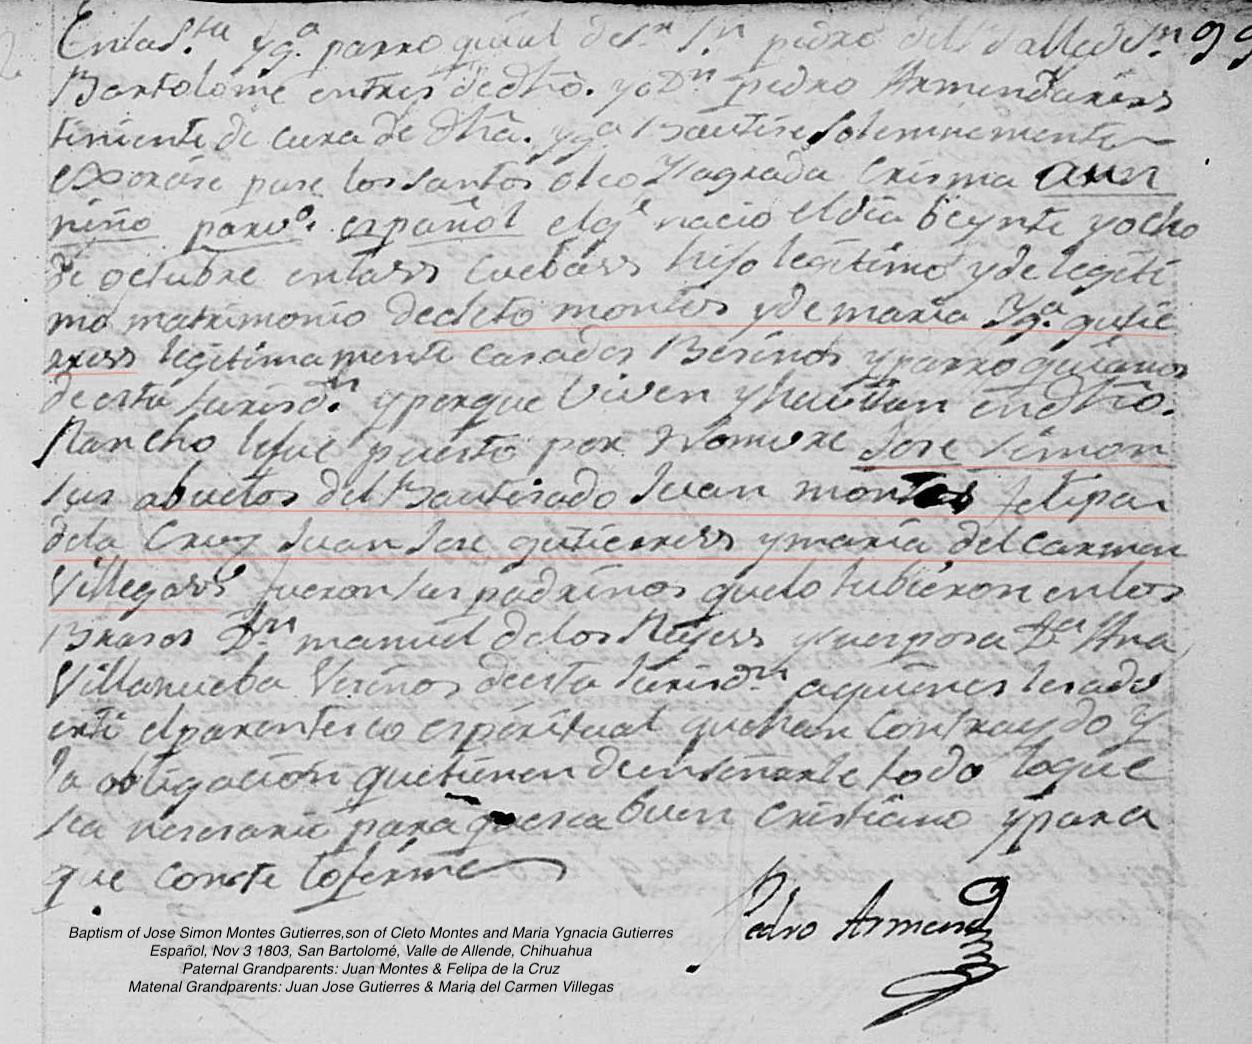 En la S.ta Yg.a parroquial de S.n pedro del Valle de S.n 99
Bartolomé en tres de dho. yo D.n pedro Armendariss
teniente de cura de dha. yg.a Bautise solemnemente
exorsise puse los santos oleo y sagrada Crisma a un
niño parv.o español el q.e nacio el dia beynte y ocho
de octubre en lass Cuebass hijo legitimo y de legiti
mo matrimonio de cleto montes y de maria Yg.a gutie
rress legitimamente casados Besinos y parroquianos
de esta Jurisd.n y porque Viven y havitan en dho.
Rancho le fue puesto por Nombre Jose Simon
sus abuelos del Bautisado Juan montes felipa
de la Cruz Juan Jose gutierress y maria del Carmen
Villegass fueron sus padrinos que lo tubieron en los
Brasos D.n manuel de los Reyess y su esposa D.a Ana
Villanueba Vesinos de esta Jurisd.n a quienes les ad
erti el parentesco espiritual que han Contraydo y
la obligacion que tienen de enseñarle todo lo que
sea nesesario para que sea buen cristiano y para
que conste lo firme
Pedro Armend
Baptism of Jose Simon Montes Gutierres,son of Cleto Montes and Maria Ygnacia Gutierres
Español, Nov 3 1803, San Bartolomé, Valle de Allende, Chihuahua
Paternal Grandparents: Juan Montes & Felipa de la Cruz
Matenal Grandparents: Juan Jose Gutierres & Maria del Carmen Villegas